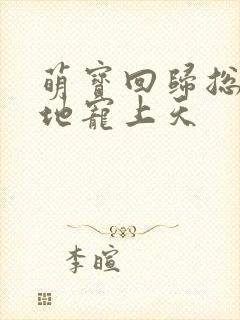 萌寶回歸總
地寵上天
李暄